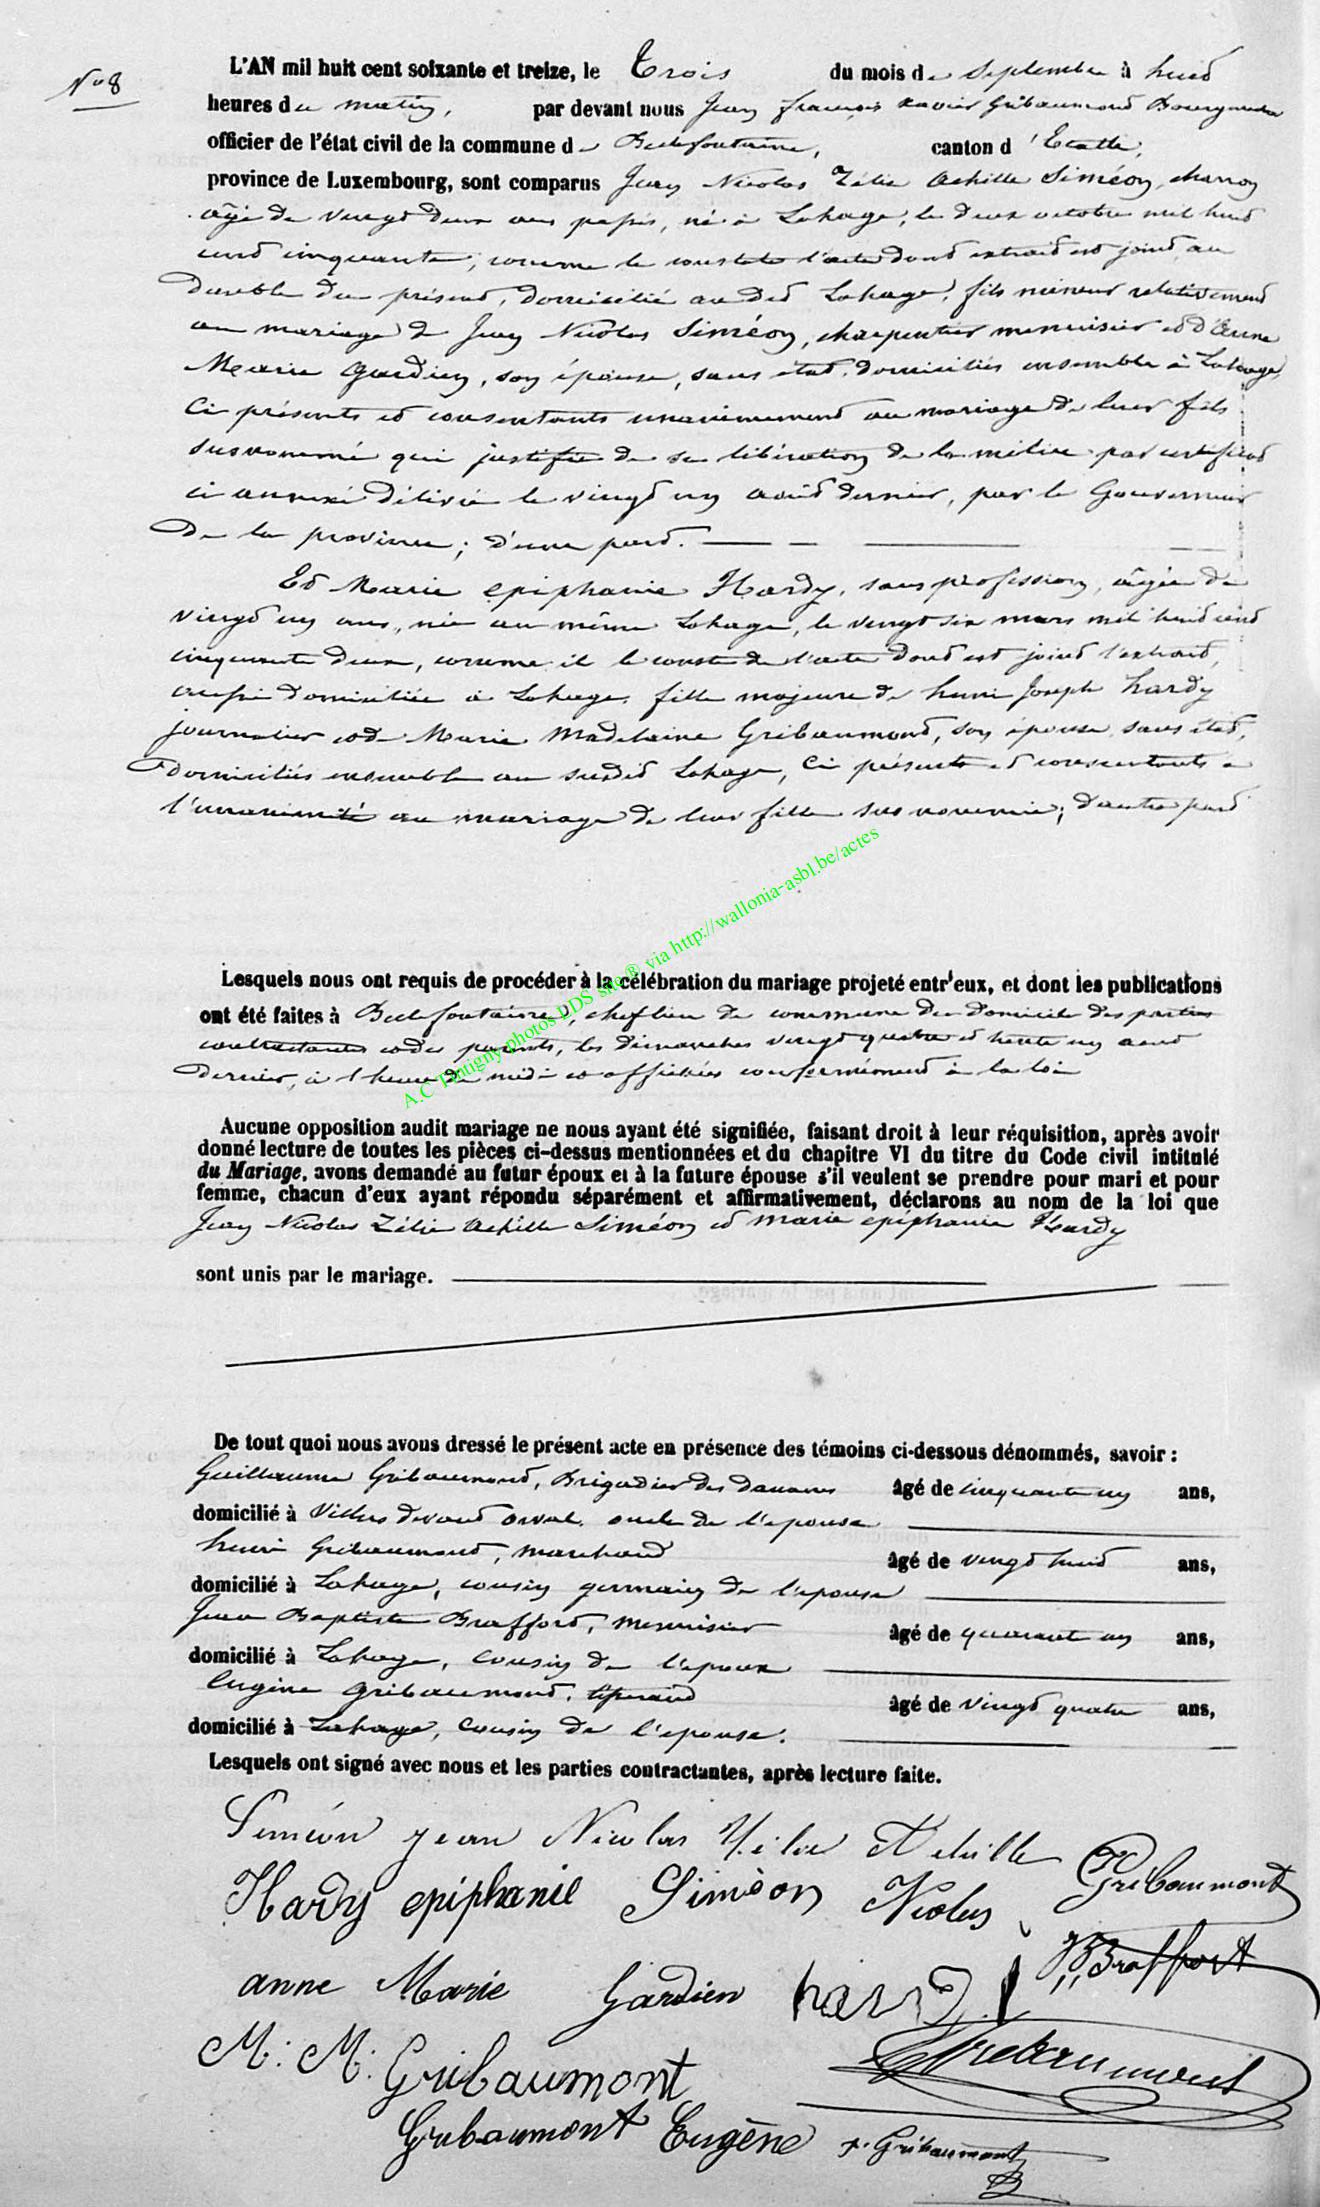 No 8
L'AN mil huit cent soixante et treize, le Trois du mois de Septembre à huit
heures du matin, par devant nous Jean françois xavier Gribaumont Bourgmestre
officier de l'état civil de la commune de Bellefontaine, canton d'Etalle,
province de Luxembourg, sont comparus Jean Nicolas Zélie Achille Siméon, charron
âgé de vingt deux ans passés, né à Lahage, le deux octobre mil huit
cent cinquante, comme le constate l'acte dont extrait est joint au
double du présent, domicilié au dit Lahage, fils mineur relativement
au mariage de Jean Nicolas Siméon, charpentier menuisier et d'Anne
Marie Gardien, son épouse, sans état, domiciliés ensemble à Lahage,
ci présents et consentants unanimement au mariage de leur fils
susnommé qui justifie de sa libération de la milice par certificat
ci annexé délivré le vingt un août dernier, par le Gouverneur
de la province; d'une part.
Et Marie epiphanie Hardy, sans profession, âgée de
vingt un ans, née au même Lahage, le vingt six mars mil huit cent
cinquante deux, comme il le conste de l'acte dont est joint l'extrait,
aussi domiciliée à Lahage, fille majeure de henri Joseph hardy
journalier et de Marie Madelaine Gribaumont, son épouse, sans état,
domiciliés ensemble au susdit Lahage, ci présents et consentants à
l'unanimité au mariage de leur fille sus nommée; d'autre part
Lesquels nous ont requis de procéder à la célébration du mariage projeté entr'eux, et dont les publications
ont été faites à Bellefontaine, chef lieu de commune du domicile des parties
contractantes et des parents, les dimanches vingt quatre et trente un août
dernier, à l'heure de midi et affichées conformément à la loi
Aucune opposition audit mariage ne nous ayant été signifiée, faisant droit à leur réquisition, après avoir
donné lecture de toutes les pièces ci-dessus mentionnées et du chapitre VI du titre du Code civil intitulé
du Mariage, avons demandé au futur époux et à la future épouse s'il veulent se prendre pour mari et pour
femme, chacun d'eux ayant répondu séparément et affirmativement, déclarons au nom de la loi que
Jean Nicolas Zélie Achille Siméon et marie epiphanie Hardy
sont unis par le mariage.
De tout quoi nous avons dressé le présent acte en présence des témoins ci-dessous dénommés, savoir :
Guillaume Gribaumont, Brigadier des douanes âgé de cinquante un ans,
domicilié à Villers devant orval, oncle de l'epouse
henri Gribaumont, marchand âgé de vingt huit ans,
domicilié à Lahage, cousin germain de l'epouse
Jean Baptiste Braffort, menuisier âgé de quarante un ans,
domicilié à Lahage, cousin de l'epoux
Eugène Gribaumont, âgé de vingt quatre ans,
domicilié à Lahage, cousin de l'epouse.
Lesquels ont signé avec nous et les parties contractantes, après lecture faite.
Siméon jean Nicolas Zélie Achille Gribaumont
Hardy epiphanie Siméon Nicolas
JB Braffort
anne Marie Gardien hardy
M. M. Gribaumont Gribaumont
Gribaumont Eugène Gribaumont
A.C Tintigny photos LDS site® via http://wallonia-asbl.be/actes